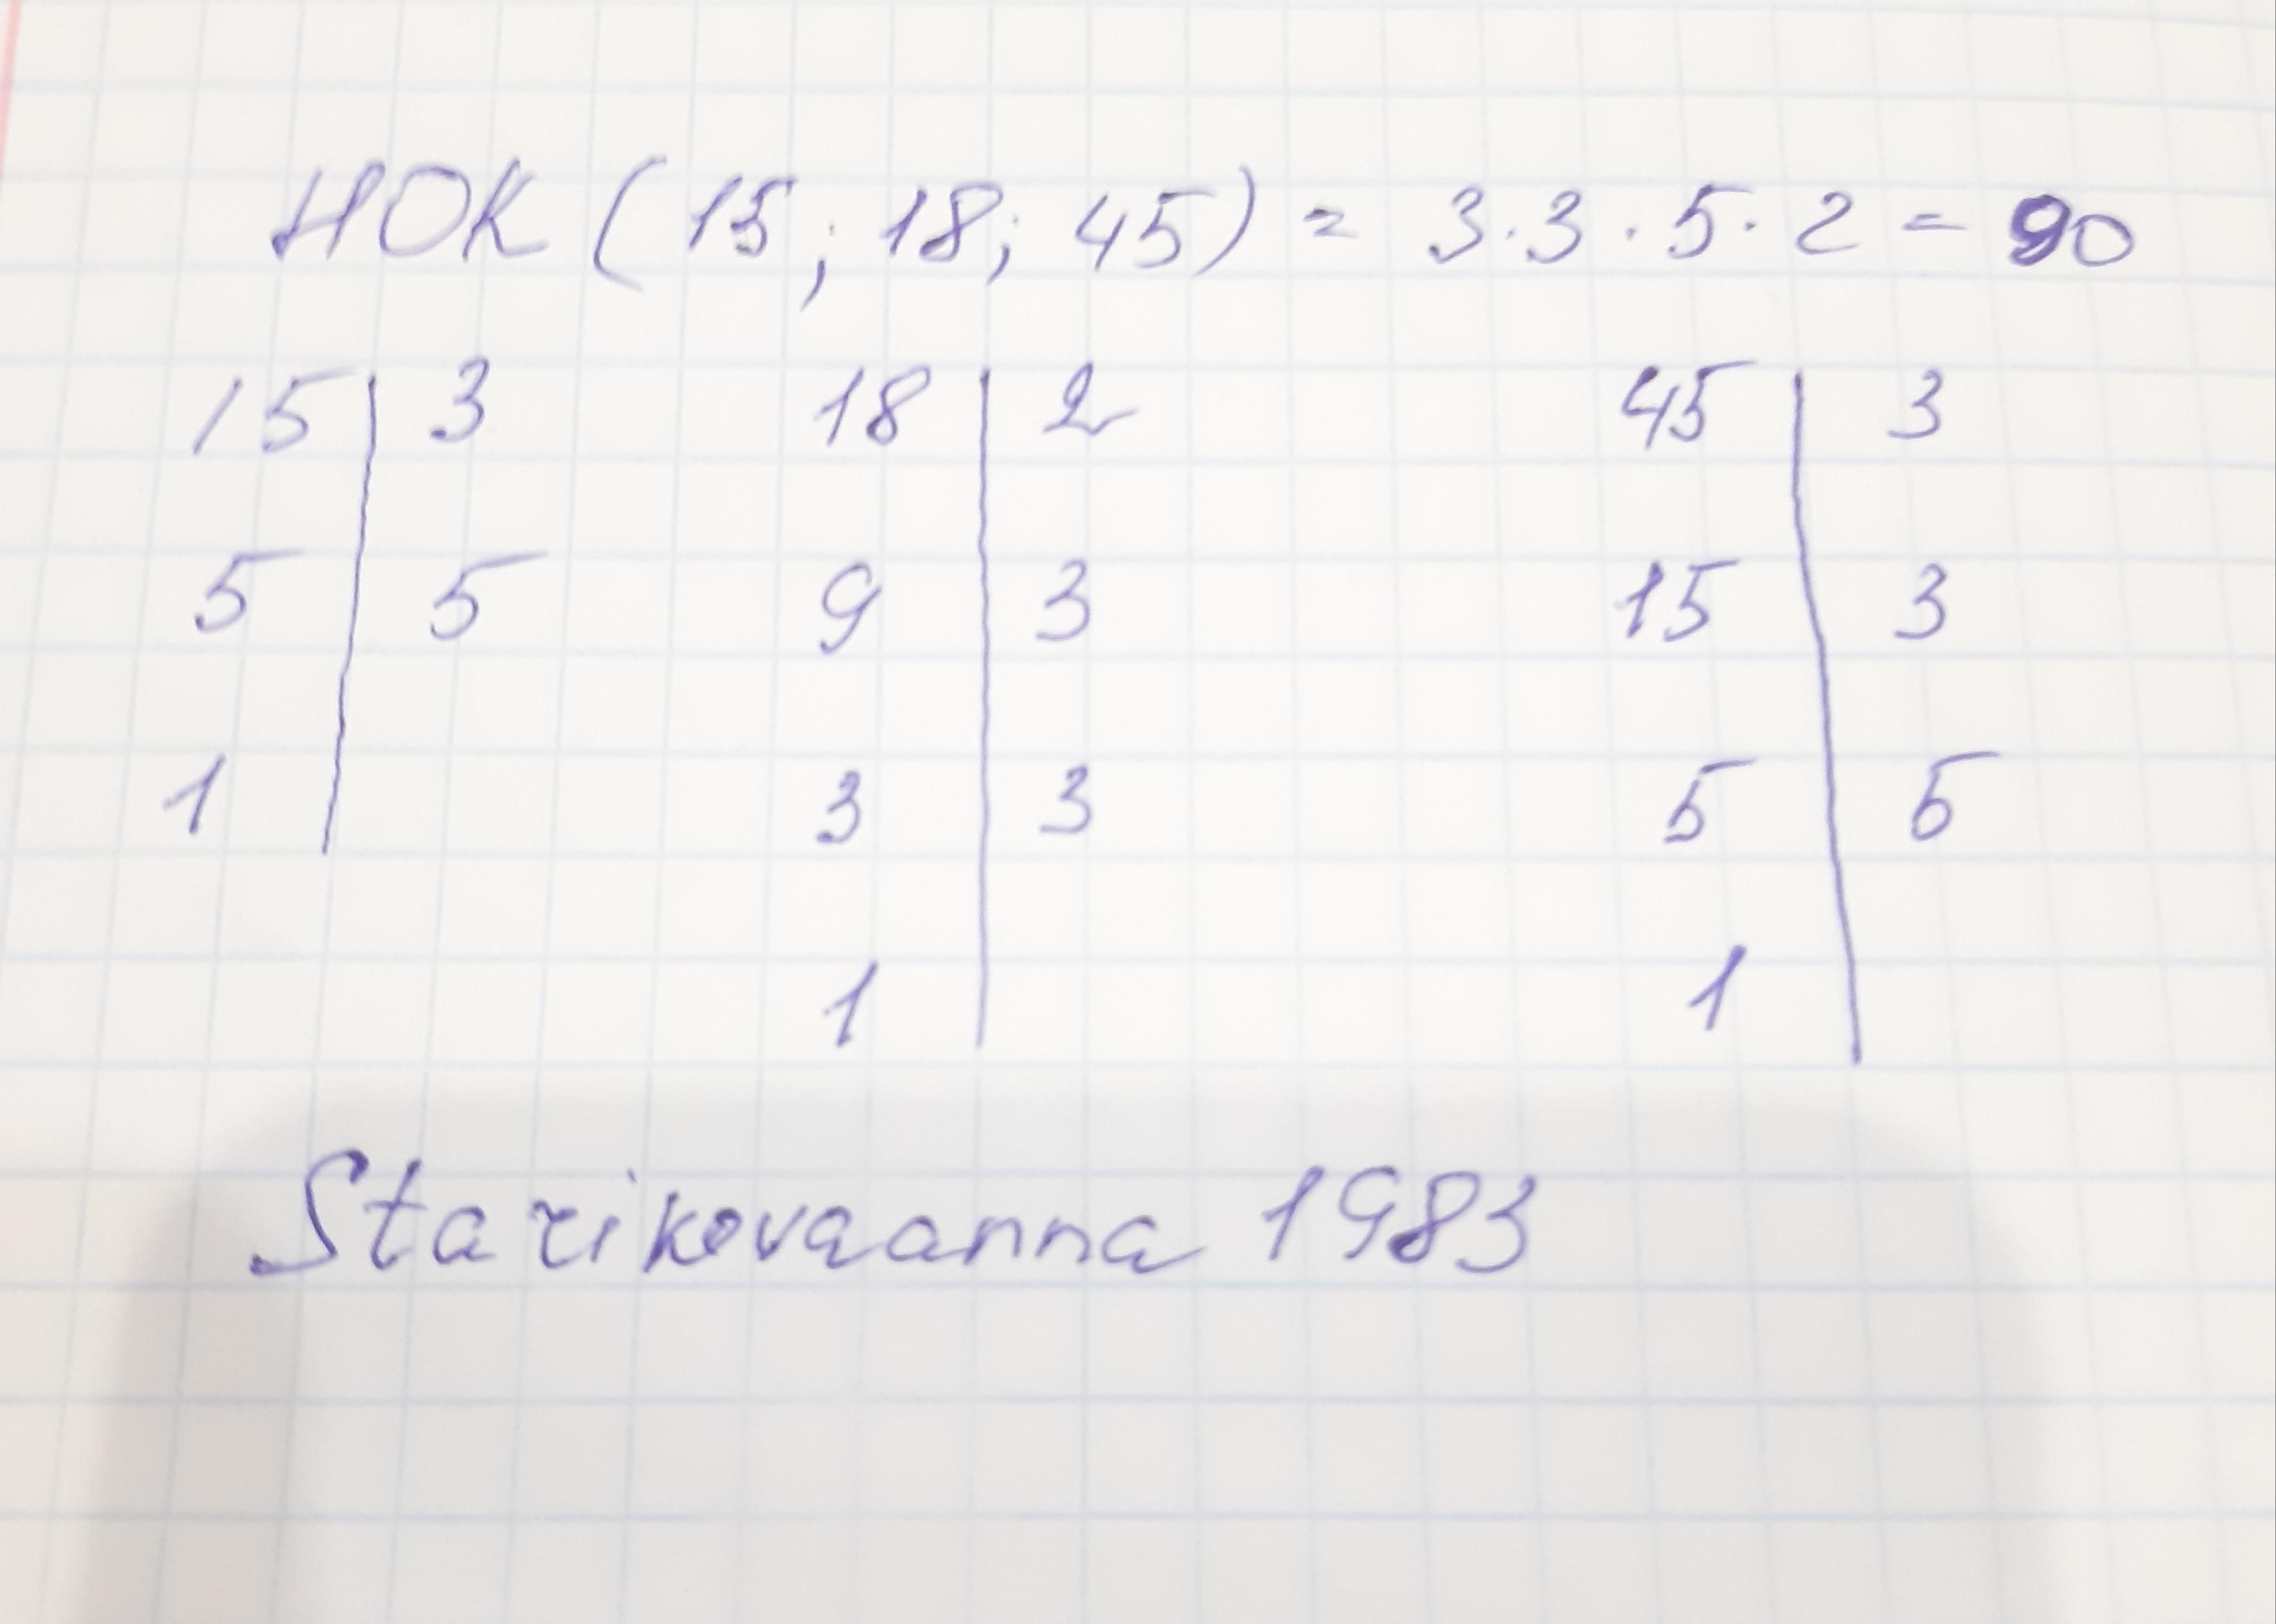 НОК (15; 18; 45) = 3·3·5·2 = 90
15 | 3 18 | 2 45 | 3
5 | 5 9 | 3 15 | 3
1 | 3 | 3 5 | 5
1 | 1 |
Starikovaanna 1983